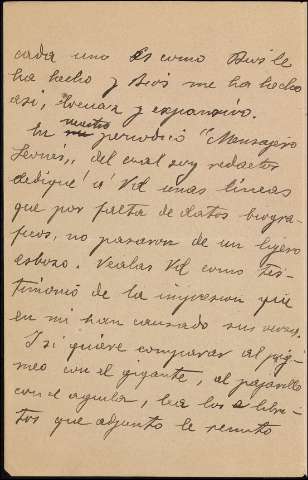 cada uno es como Dios le
ha hecho y Dios me ha hecho
asi, locuaz y expansivo.
En nuestro periodico "Mensajero
Leonés,, del cual soy redactor
dediqué á Vd unas lineas
que por falta de datos biogra-
ficos, no pasaron de un lijero
esbozo. Vealas Vd como tes-
timonio de la impresion que
en mi han causado sus versos.
I si quiere comparar al pig-
meo con el gigante, al pajarillo
con el aguila, lea los libri-
tos que adjunto le remito